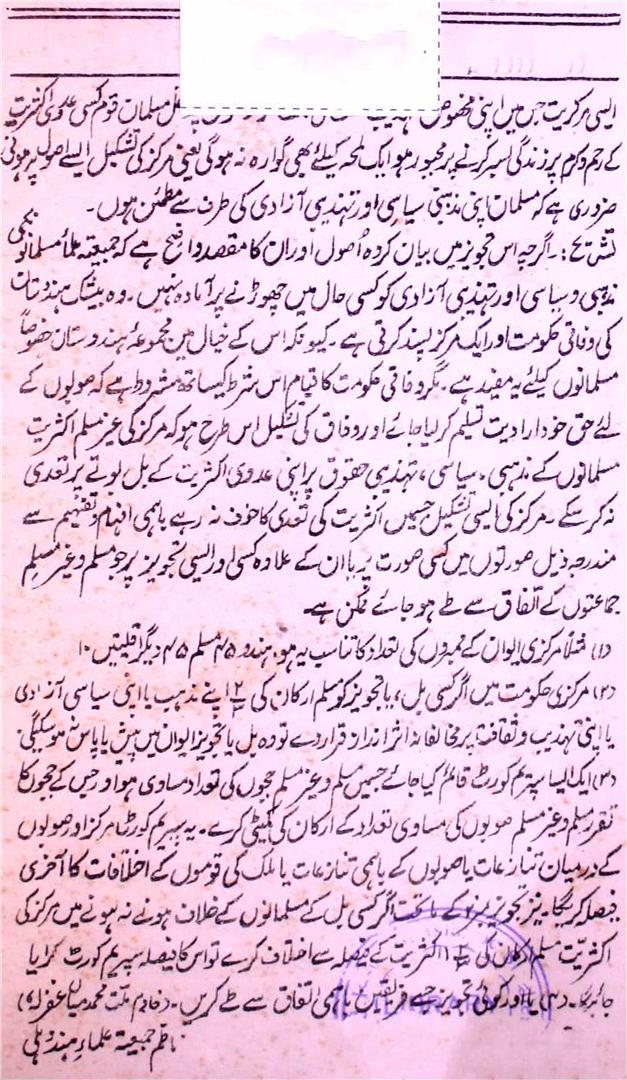 ایسی مرکزیت جس میں اپنی مخصوص مسلمان قوم کسی عددی اکثریت
کے رحم و کرم پر زندگی بسر کرنے پر مجبور ہو ایک لمحہ کیلئے بھی گوارہ نہ ہوگی یعنی مرکز کی تشکیل ایسے اصول پر ہونی
ضروری ہے کہ مسلمان اپنی مذہبی سیاسی اور تہذیبی آزادی کی طرف سے مطمئن ہوں۔
تشریح:۔ اگرچہ اس تجویز میں بیان کردہ اُصول اور ان کا مقصد واضح ہے کہ جمیعتہ علماء مسلمانوں کی
مذہبی و سیاسی اور تہذیبی آزادی کو کسی حال میں چھوڑنے پر آمادہ نہیں۔ وہ بیشک ہندستان
کی وفاقی حکومت اور ایک مرکز پسند کرتی ہے۔ کیونکہ اس کے خیال میں مجموعۂ ہندوستان خصوصاً
مسلمانوں کیلئے یہ مفید ہے۔ مگر وفاقی حکومت کا قیام اس شرط کیساتھ مشروط ہے کہ صوبوں کے
لئے حق خود ارادیت تسلیم کر لیا جائے اور وفاق کی تشکیل اس طرح ہو کہ مرکز کی غیر مسلم اکثریت
مسلمانوں کے مذہبی، سیاسی، تہذیبی حقوق پر اپنی عددی اکثریت کے بل بوتے پر تعدی
نہ کر سکے۔ مرکز کی ایسی تشکیل جسمیں اکثریت کی تعدی کا خوف نہ رہے باہمی افہام و تفہیم سے
مندرجہ ذیل صورتوں میں کسی صورت پر یا ان کے علاوہ کسی اور ایسی تجویز پر جو مسلم و غیر مسلم
جماعتوں کے اتفاق سے طے ہو جائے ممکن ہے۔
(۱) مثلاً مرکزی ایوان کے ممبروں کی تعداد کا تناسب یہ ہو، ہندو ۴۵ مسلم ۴۵ دیگر اقلیتیں ۱۰
(۲) مرکزی حکومت میں اگر کسی بل، یا تجویز کو مسلم ارکان کی اپنے مذہب یا اپنی سیاسی آزادی
یا اپنی تہذیب و ثقافت پر مخالفانہ اثر انداز قرار دے تو وہ بل یا تجویز ایوان میں پیش یا پاس نہ ہو سکیگی
(۳) ایک ایسا سپریم کورٹ قائم کیا جائے جسمیں مسلم و غیر مسلم ججوں کی تعداد مساوی ہو اور جس کے ججوں کا
تقرر مسلم و غیر مسلم صوبوں کی مساوی تعداد کے ارکان کی کمیٹی کرے۔ یہ سپریم کورٹ مرکز اور صوبوں
کے درمیان تنازعات یا صوبوں کے باہمی تنازعات یا ملک کی قوموں کے اختلافات کا آخری
فیصلہ کریگا۔ نیز تجویز کے ماتحت اگر کسی بل کے مسلمانوں کے خلاف ہونے نہ ہونے میں مرکز کی
اکثریت مسلم ارکان کی اکثریت کے فیصلہ سے اختلاف کرے تو اس کا فیصلہ سپریم کورٹ کرایا
جائیگا۔ (۴) یا اور کوئی تجویز جسے فریقین باہمی اتفاق سے طے کریں۔ (خادم ملت محمد میاں عفرلہ)
ناظم جمیعتہ علماءِ ہند دہلی